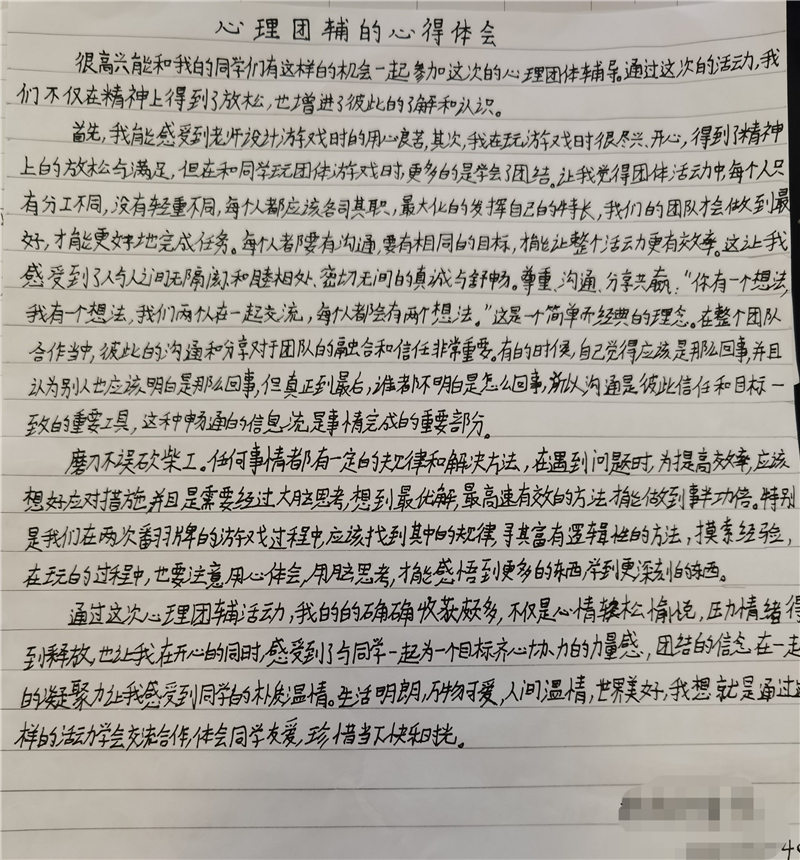 心理团辅的心得体会
很高兴能和我的同学们有这样的机会一起参加这次的心理团体辅导。通过这次的活动,我
们不仅在精神上得到了放松,也增进了彼此的了解和认识。
首先,我能感受到老师设计游戏时的用心良苦,其次,我在玩游戏时很尽兴、开心,得到了精神
上的放松与满足,但在和同学玩团体游戏时,更多的是学会了团结。让我觉得团体活动中,每个人只
有分工不同,没有轻重不同,每个人都应该各司其职、最大化的发挥自己的特长,我们的团队才会做到最
好,才能更好地完成任务。每个人都要有沟通,要有相同的目标,才能让整个活动更有效率。这让我
感受到了人与人之间无隔阂和睦相处、密切无间的真诚与舒畅。尊重、沟通、分享共赢:“你有一个想法,
我有一个想法,我们两个人在一起交流,每个人都会有两个想法。”这是一个简单而经典的理念。在整个团队
合作当中,彼此的沟通和分享对于团队的融合和信任非常重要。有的时候,自己觉得应该是那么回事,并且
认为别人也应该明白是那么回事,但真正到最后,谁都不明白是怎么回事,所以沟通是彼此信任和目标一
致的重要工具,这种畅通的信息流,是事情完成的重要部分。
磨刀不误砍柴工。任何事情都有一定的规律和解决方法,在遇到问题时,为提高效率,应该
想好应对措施,并且是需要经过大脑思考,想到最优解,最高速有效的方法才能做到事半功倍。特别
是我们在两次翻羽牌的游戏过程中,应该找到其中的规律,寻其富有逻辑性的方法,摸索经验,
在玩的过程中,也要注意用心体会,用脑思考,才能感悟到更多的东西,学到更深刻的东西。
通过这次心理团辅活动,我的的确确收获颇多,不仅是心情轻松愉悦,压力情绪得
到释放,也让我在开心的同时,感受到了与同学一起为一个目标齐心协力的力量感,团结的信念在一起
的凝聚力让我感受到同学的朴质温情。生活明朗,万物可爱,人间温情,世界美好,我想就是通过这
样的活动学会交流合作,体会同学友爱,珍惜当下快乐时光。